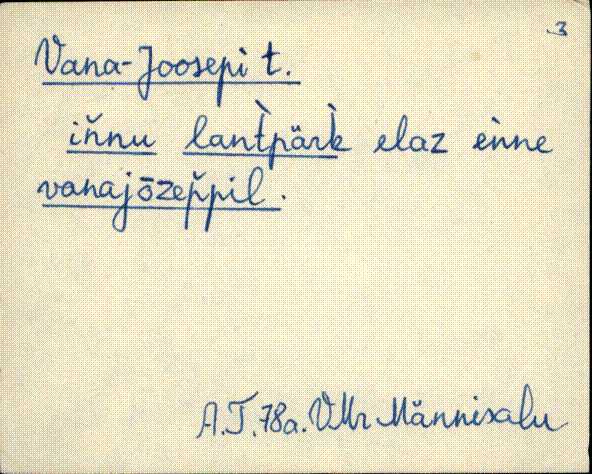 3
Vana-Joosepi t.
iňnu lant̀pärk̀ elaz ènne
vanajōzep̌pil.
A.T. 78a. VMr Männisalu